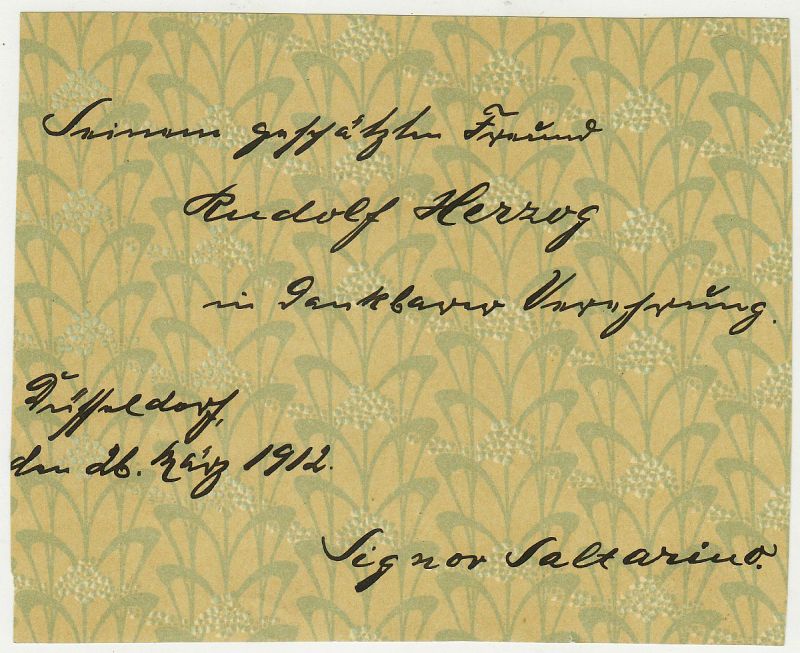 Seinem geschätzten Freund
Rudolf Herzog
in dankbarer Verehrung.
Düsseldorf,
den 26. März 1912.
Signor Saltarino.